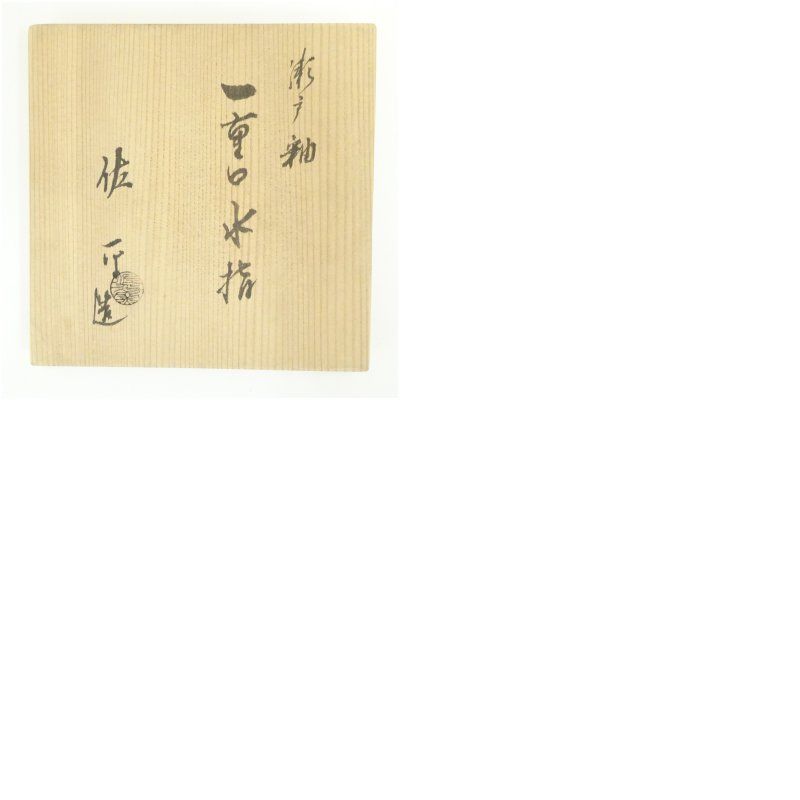 瀬戸釉
一重口水指
佐平造